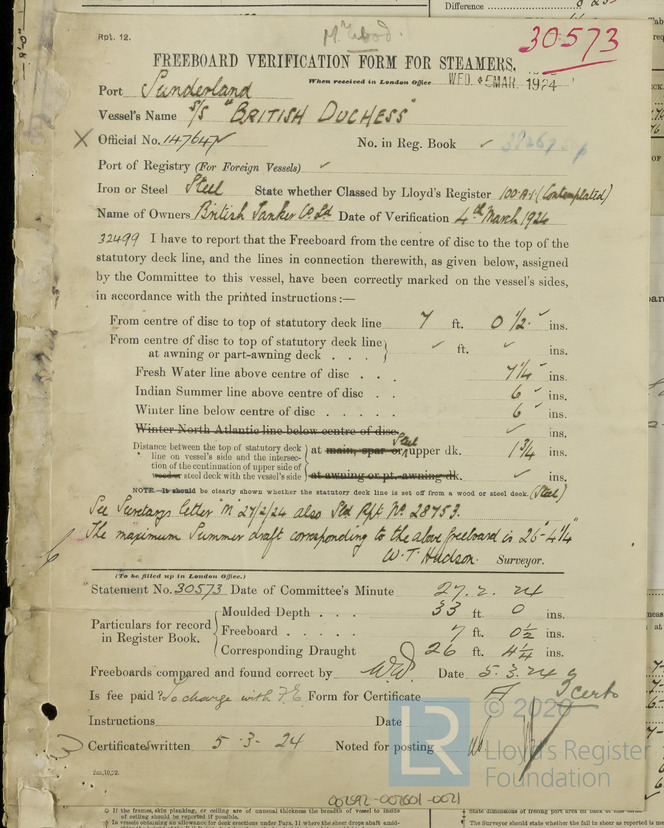 Difference
Rpt. 12.
30573
FREEBOARD VERIFICATION FORM FOR STEAMERS.
When received in London Office WED. 5 MAR. 1924
Port Sunderland
Vessel's Name S/S "BRITISH DUCHESS"
Official No. 147647 No. in Reg. Book
Port of Registry (For Foreign Vessels)
Iron or Steel Steel State whether Classed by Lloyd's Register 100.A.1 (Contemplated)
Name of Owners British Tanker Co. Ld Date of Verification 4th March 1924
32499 I have to report that the Freeboard from the centre of disc to the top of the
statutory deck line, and the lines in connection therewith, as given below, assigned
by the Committee to this vessel, have been correctly marked on the vessel's sides,
in accordance with the printed instructions:—
From centre of disc to top of statutory deck line 7 ft. 0 1/2 ins.
From centre of disc to top of statutory deck line
at awning or part-awning deck . . . ft. ins.
Fresh Water line above centre of disc . . . 7 1/4 ins.
Indian Summer line above centre of disc . . 6 ins.
Winter line below centre of disc . . . . . 6 ins.
Winter North Atlantic line below centre of disc. ins.
Distance between the top of statutory deck
line on vessel's side and the intersec-
tion of the continuation of upper side of
wood or steel deck with the vessel's side
at main, spar or Steel upper dk. 1 3/4 ins.
at awning or pt.-awning dk. ins.
NOTE.—It should be clearly shown whether the statutory deck line is set off from a wood or steel deck. (Steel)
See Secretarys letter "N" 27/2/24 also Sld Rpt. No. 28753.
The maximum Summer draft corresponding to the above freeboard is 26'-4 1/4"
W. T. Hudson. Surveyor.
(To be filled up in London Office.)
Statement No. 30573 Date of Committee's Minute 27. 2. 24
Particulars for record
in Register Book.
Moulded Depth . . . 33 ft. 0 ins.
Freeboard . . . . . 7 ft. 0 1/2 ins.
Corresponding Draught 26 ft. 4 1/4 ins.
Freeboards compared and found correct by Date 5.3.24
Is fee paid? To charge with F.E. Form for Certificate
Instructions Date
Certificate written 5 . 3 . 24 Noted for posting
© 2020
LR
Lloyd's Register
Foundation
002592-002601-0021
If the frames, skin planking, or ceiling are of unusual thickness the breadth of vessel to inside
of ceiling should be reported if possible.
The Surveyor should state whether the fall in sheer as reported is